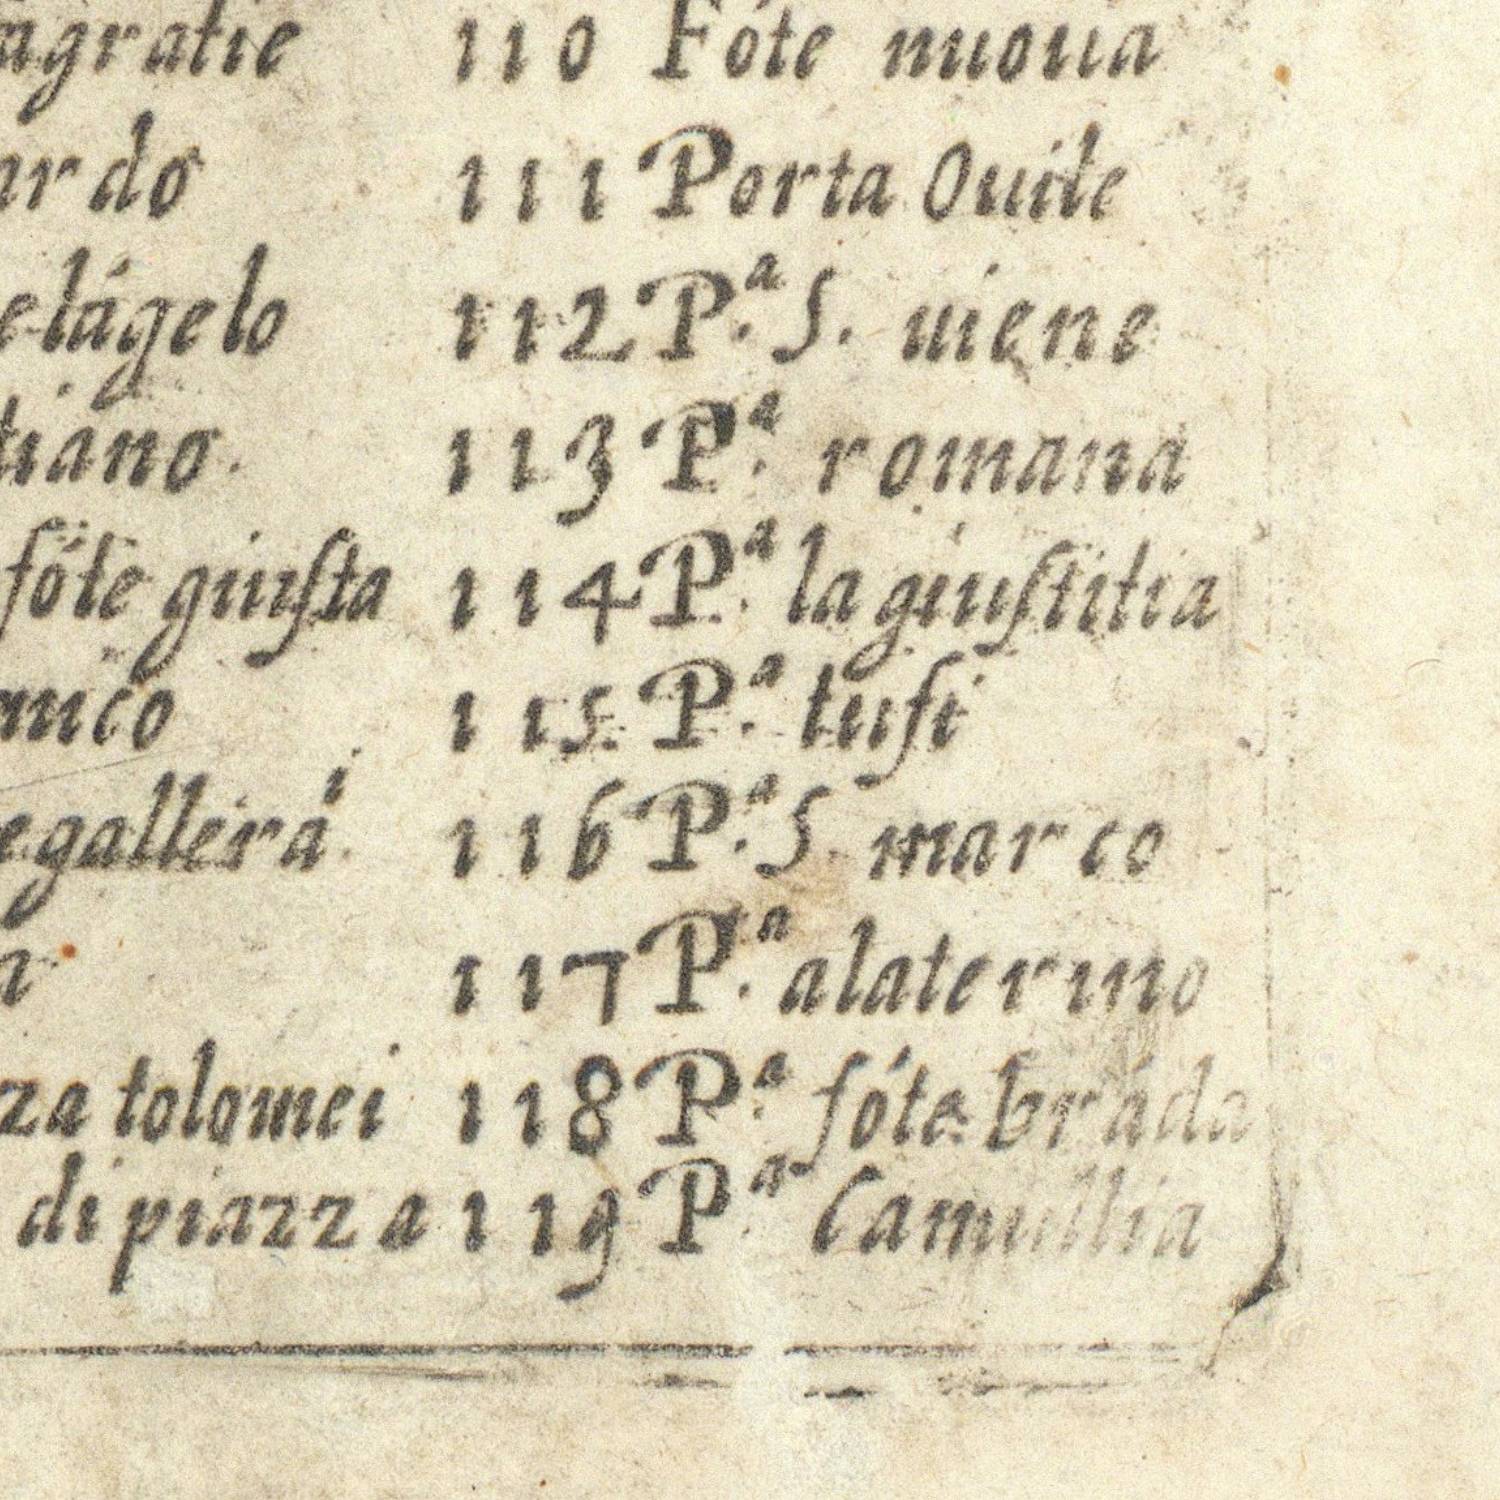 agratie 110 Fóte nuoua
ardo 111 Porta Ouile
elágelo 112 P.ª S. uiene
tiano. 113 P.ª romana
fóte giusta 114 P.ª la giustitia
nico 115 P.ª tufi
egallerá i 116 P.ª S marco
a 117 P.ª alaterino
za tolomei 118 P.ª fóte bráda
di piazza 119 P.ª Camullia